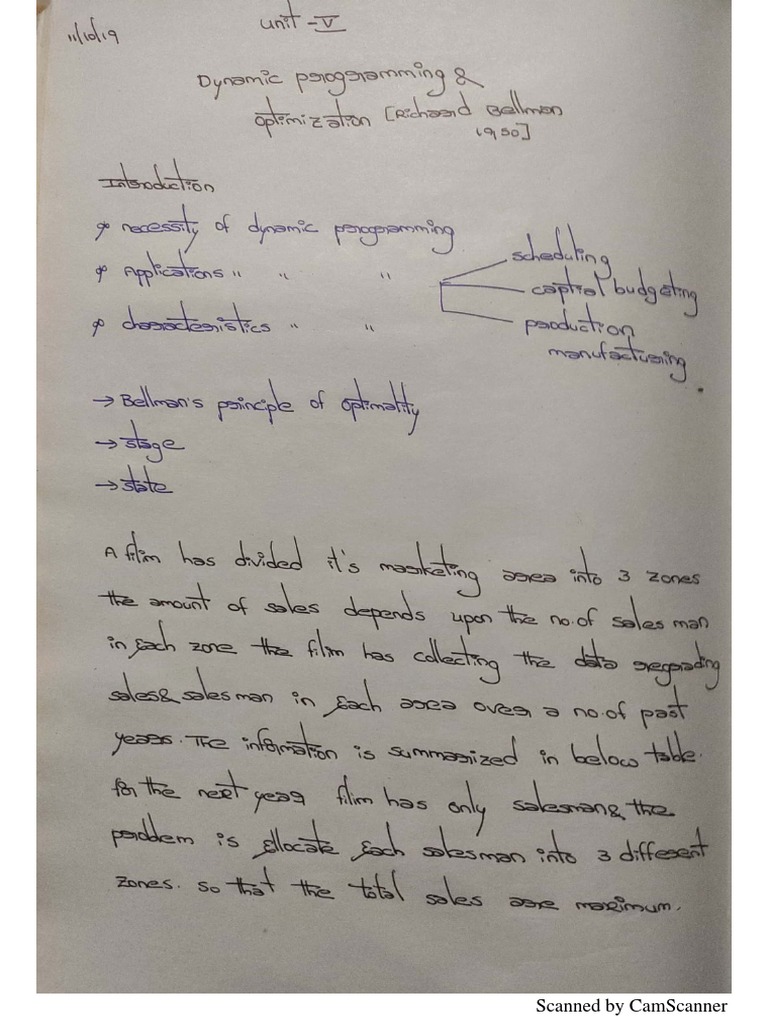 11/10/19
Unit - V
Dynamic programming &
optimization [Richard Bellman
1950]
Introduction
* necessity of dynamic programming
* Applications " " "
* characteristics " "
scheduling
captial budgeting
production
manufacturing
→ Bellman's principle of optimality
→ stage
→ state
A filim has divided it's marketing area into 3 zones
the amount of sales depends upon the no. of sales man
in Each zone the filim has collecting the data regarding
sales & sales man in Each area over a no. of past
years. The information is summarized in below table.
for the next year filim has only salesman & the
problem is allocate Each salesman into 3 different
zones. so that the total sales are maximum.
Scanned by CamScanner